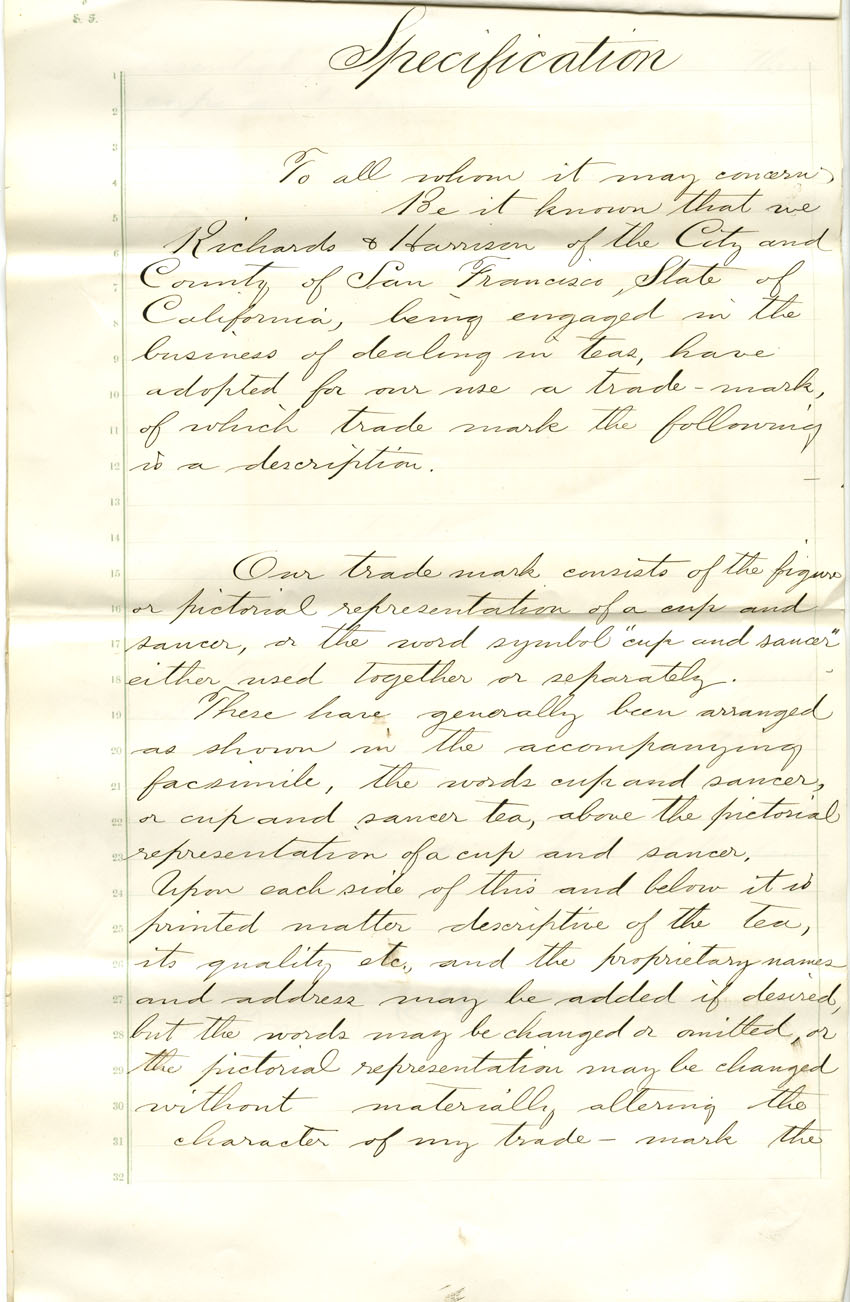 Specification
To all whom it may concern,
Be it known that we
Richards & Harrison of the City and
County of San Francisco, State of
California, being engaged in the
business of dealing in teas, have
adopted for our use a trade-mark,
of which trade mark the following
is a description.
Our trade mark consists of the figure
or pictorial representation of a cup and
saucer, or the word symbol "cup and saucer"
either used together or separately.
These have generally been arranged
as shown in the accompanying
facsimile, the words cup and saucer,
or cup and saucer tea, above the pictorial
representation of a cup and saucer.
Upon each side of this and below it is
printed matter descriptive of the tea,
its quality etc., and the proprietary names
and address may be added if desired,
but the words may be changed or omitted, or
the pictorial representation may be changed
without materially altering the
character of my trade-mark the